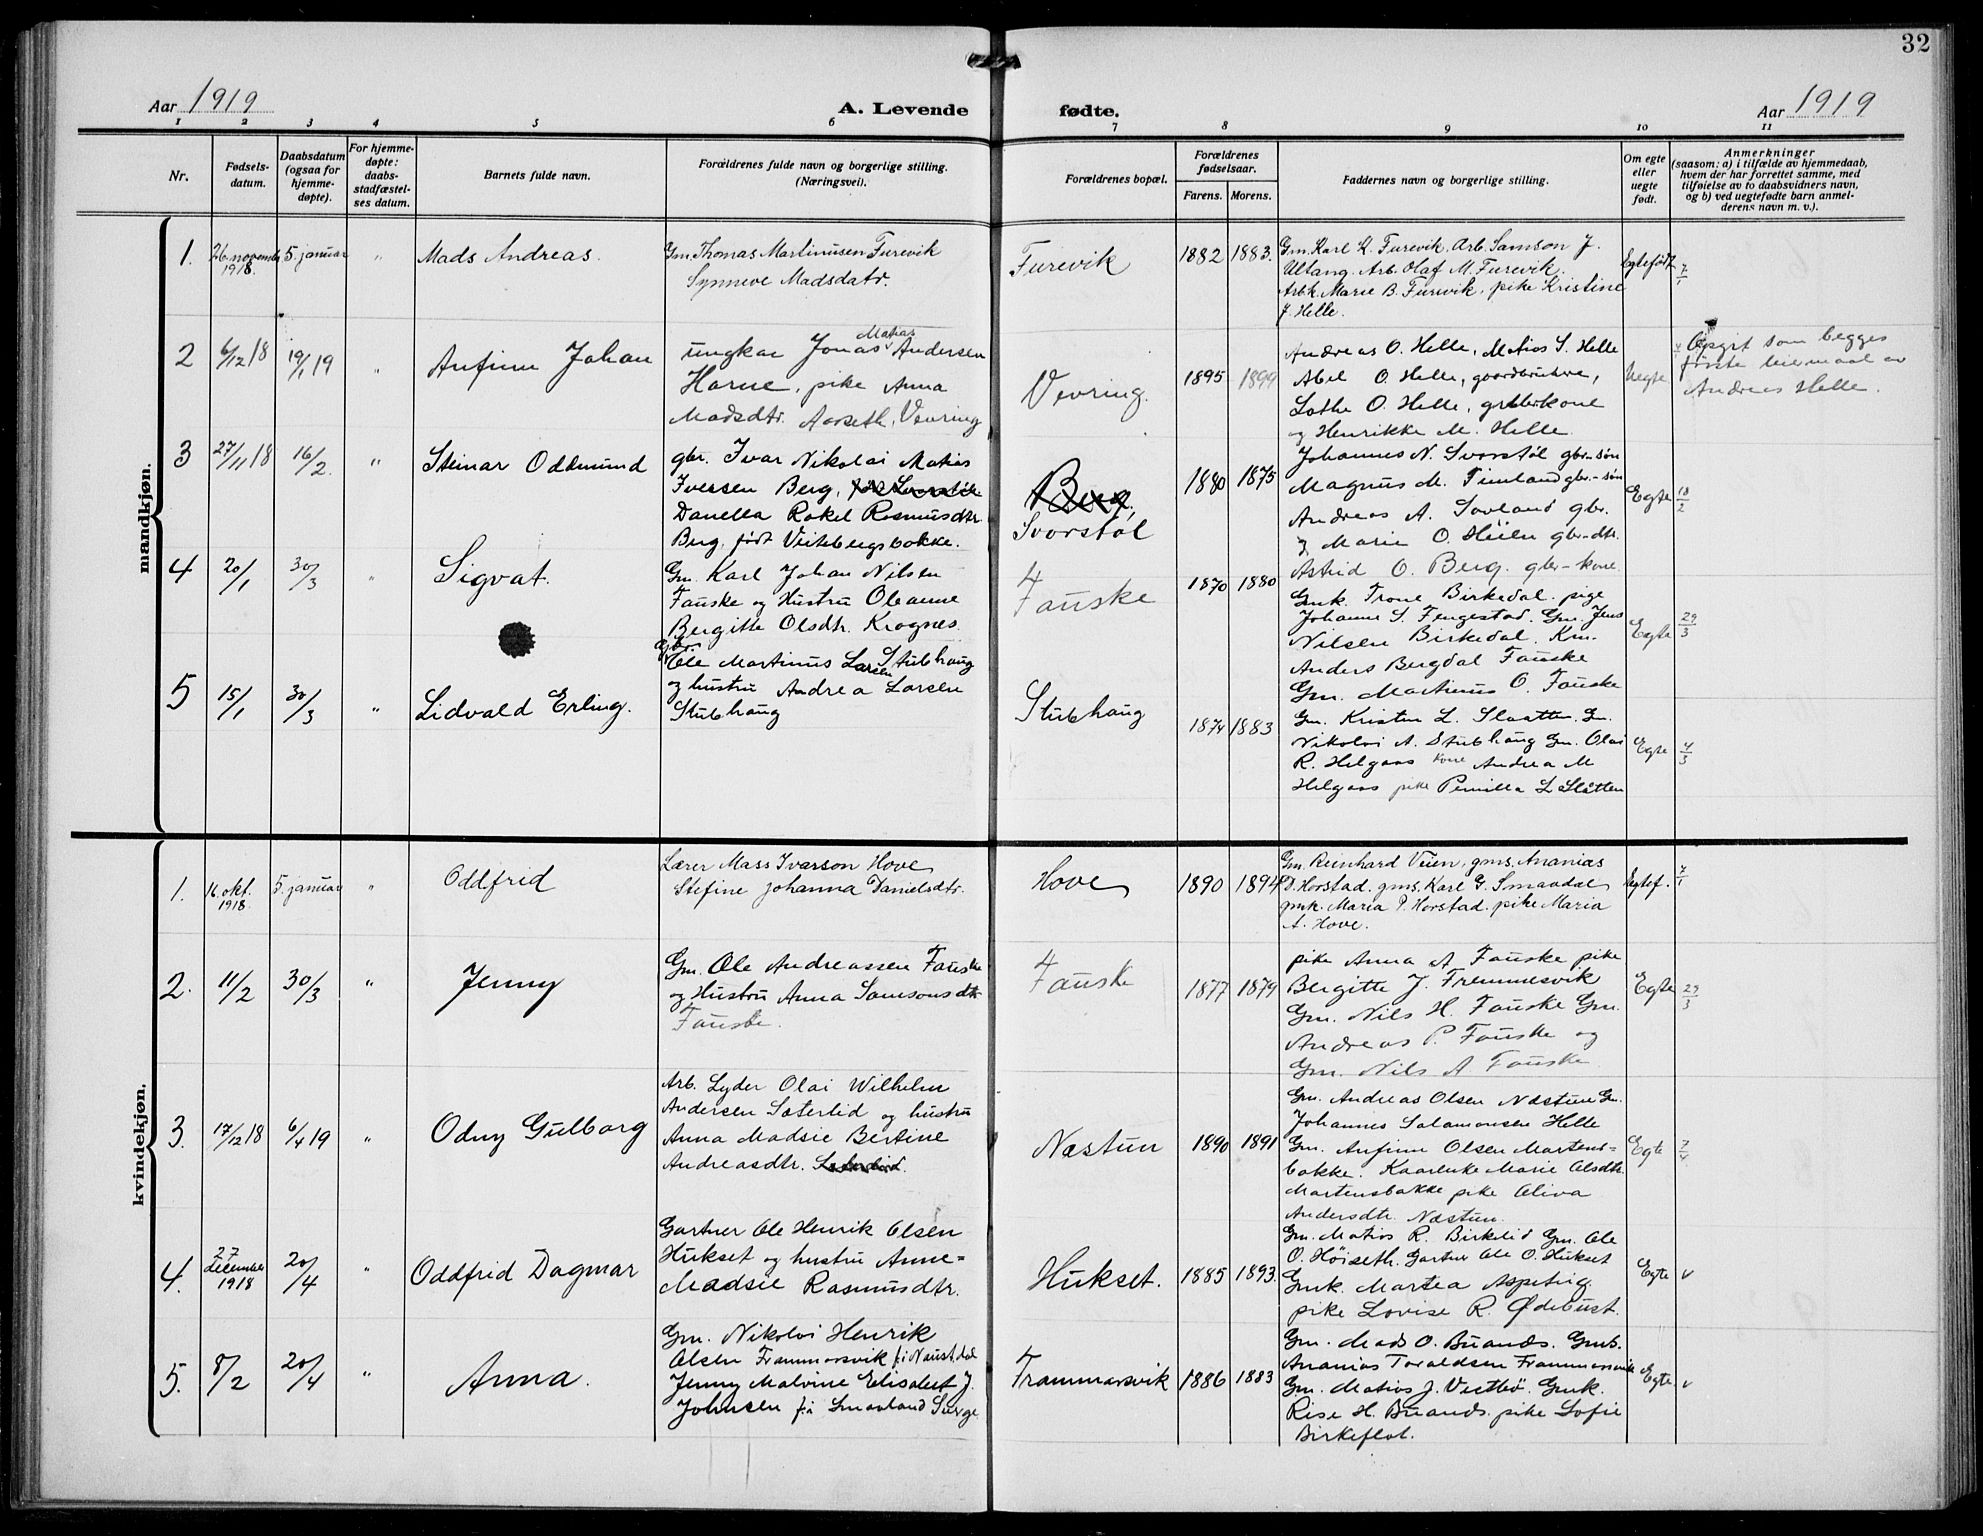 32
Aar 1919
A. Levende
fødte.
Aar 1919
1 2 3 4 5 6 7 8 9 10 11
Nr.
Fødsels-
datum.
Daabsdatum
(ogsaa for
hjemme-
døpte).
For hjemme-
døpte:
daabs-
stadfæstel-
ses datum.
Barnets fulde navn.
Forældrenes fulde navn og borgerlige stilling.
(Næringsvei).
Forældrenes bopæl.
Forældrenes
fødselsaar.
Farens. Morens.
Faddernes navn og borgerlige stilling.
Om egte
eller
uegte
født.
Anmerkninger
(saasom: a) i tilfælde av hjemmedaab,
hvem der har forrettet samme, med
tilføielse av to daabsvidners navn,
og b) ved uegtefødte barn anmel-
derens navn m. v.).
mandkjøn.
1. 26. novemb. 1918. 5. januar " Mads Andreas.
Gm. Thomas Martinusen Furevik
Synneve Madsdatr.
Furevik 1882 1883.
Gm. Karl K. Furevik, Arb. Samson J.
Utang. Arb. Olaf M. Furevik.
Arbk. Marie B. Furevik, pike Kristine
J. Helle.
Egtefødt 7/1
2 6/12 18 19/1 19 " Anfinn Johan
ungkar Jonas Matias Andersen
Horne, pike Anna
Madsdtr. Aarseth, Vevring
Vevring. 1895 1899
Andreas O. Helle, Matias S. Helle
Abel O. Helle, gaardbrukere,
Lothe O. Helle, grbrkone
og Henrikke M. Helle.
Uegte
Opgit som begges
første leiermaal av
Andreas Helle.
3 27/11 18 16/2 " Steinar Oddmund
gbr. Ivar Nikolai Matias
Iversen Berg,
Danella Rakel Rasmusdtr.
Berg, født Veitebergsbakke.
Berg,
Svorstøl
1880 1875
Johannes N. Svorstøl gbr-søn
Magnus M. Timland gbr.-søn
Andreas A. Sovland gbr.
Marie O. Høien gbr-dtr.
Astrid O. Berg. gbr-kone.
Egte 18/2
4 20/1 30/3 " Sigvat.
Gm. Karl Johan Nilsen
Fauske og Hustru Oleanne
Bergitte Olsdtr. Krognes.
Fauske 1870 1880
Gmk. Trone Birkedal. pige
Johanne S. Fengestad. Gm. Jens
Nilsen Birkedal, Km.
Anders Bergdal Fauske
Gm. Martinus O. Fauske
Egte 29/3
5 15/1 30/3 " Lidvald Erling.
Gbr.
Ole Martinus Larsen Stubhaug
og hustru Andrea Larsen
Stubhaug
Stubhaug 1874 1883
Gm. Kristen L. Slaatten. Gm.
Nikolai A. Stubhaug Gm. Olai
R. Helgaas kone Andrea M
Helgaas pike Pernilla L Slåtten
Egte 4/3
kvindekjøn.
1. 16. okt. 1918. 5. januar " Oddfrid
Lærer Mass Ivarson Hove
Stefine Johanna Danielsdtr.
Hove 1890 1894
Gm. Reinhard Veien, gms. Ananias
D. Horstad. gms. Karl G. Smaadal
gmk. Maria P. Horstad. pike Maria
A. Hove.
Egtef. 7/1
2. 11/2 30/3 " Jenny
Gm. Ole Andreassen Fauske
og Hustru Anna Samsonsdtr
Fauske.
Fauske 1877 1879
pike Anna A Fauske pike
Bergitte J. Fremmesvik
Gm. Nils H. Fauske Gm.
Andreas P. Fauske og
Gm. Nils A Fauske
Egte 29/3
3. 17/12 18 6/4 19 " Odny Gulborg
Arb. Lyder Olai Wilhelm
Andersen Sæterlid og hustru
Anna Madsie Bertine
Andreasdtr.
Næstun 1890 1891
Gm. Andreas Olsen Næstun Gm.
Johannes Salamonsen Helle
Gm. Anfinn Olsen Martens-
bakke. Kaarenke Marie Olsdtr
Martensbakke pike Oliva
Andersdtr. Næstun.
Egte 7/4
4. 27 December 1918 20/4 " Oddfrid Dagmar
Gartner Ole Henrik Olsen
Hukset og hustru Anne-
Madsie Rasmusdtr.
Hukset. 1885 1893.
Gm. Matias R. Birkelid Gm. Ole
O. Høiseth. Gartner Ole O. Hukset
Gmk. Martea Aspeteig.
pike Lovise R. Ødebust.
Egte v
5. 8/2 20/4 " Anna.
Gm. Nikolai Henrik
Olsen Frammarsvik f. i Naustdal
Jenny Malvine Elisabet J.
Johnsen f. i Smaaland Sverge
Frammarsvik 1886 1883
Gm. Mads O. Buands. Gmb.
Ananias Toraldsen Frammarsvik
Gm. Matias J. Vestbø. Gmk.
Rise H. Buands. pike Sofie
Birkeflot.
Egte. v